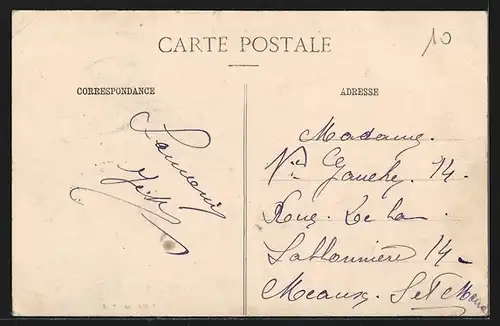 CARTE POSTALE
10
CORRESPONDANCE
ADRESSE
Souvenir
Madame.
Vve Gauchy. 14.
Rue. De la
Sablonnière 14-
Meaux. Set Marne